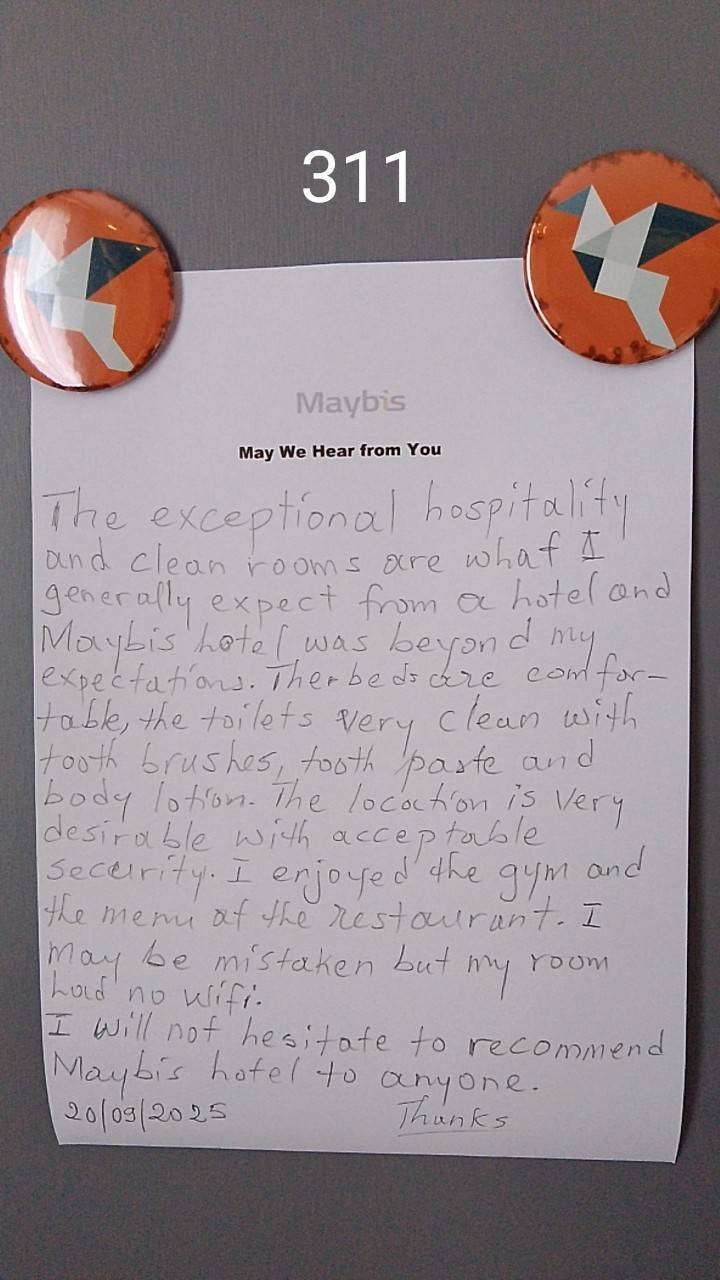 311
Maybis
May We Hear from You
The exceptional hospitality
and clean rooms are what I
generally expect from a hotel and
Maybis hotel was beyond my
expectations. The beds are comfor-
table, the toilets very clean with
tooth brushes, tooth paste and
body lotion. The location is very
desirable with acceptable
security. I enjoyed the gym and
the menu at the restaurant. I
may be mistaken but my room
had no wifi.
I will not hesitate to recommend
Maybis hotel to anyone.
20/09/2025 Thanks